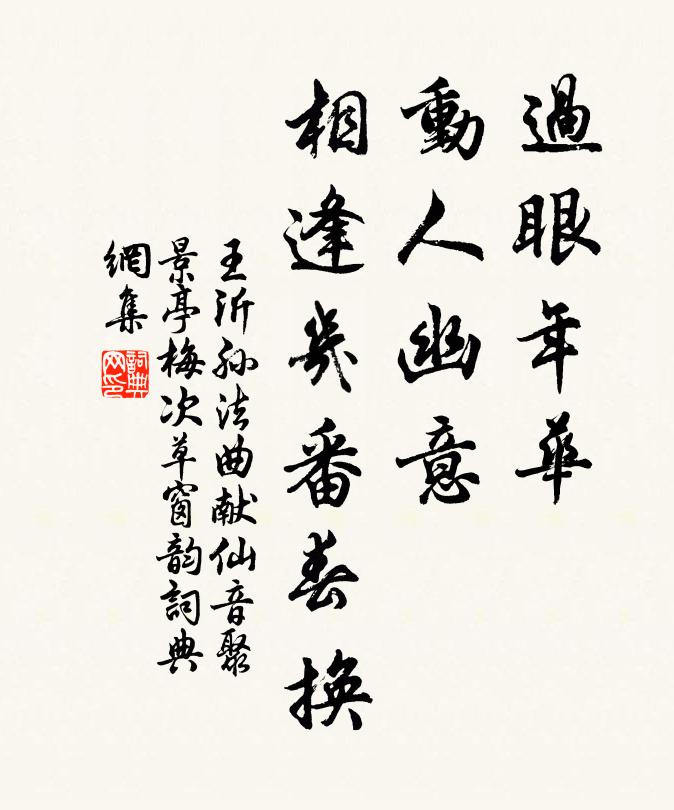 過眼年華
動人幽意
相逢幾番春換
王沂孙法曲献仙音聚
景亭梅次草窗韵詞典
網集
詞典网印